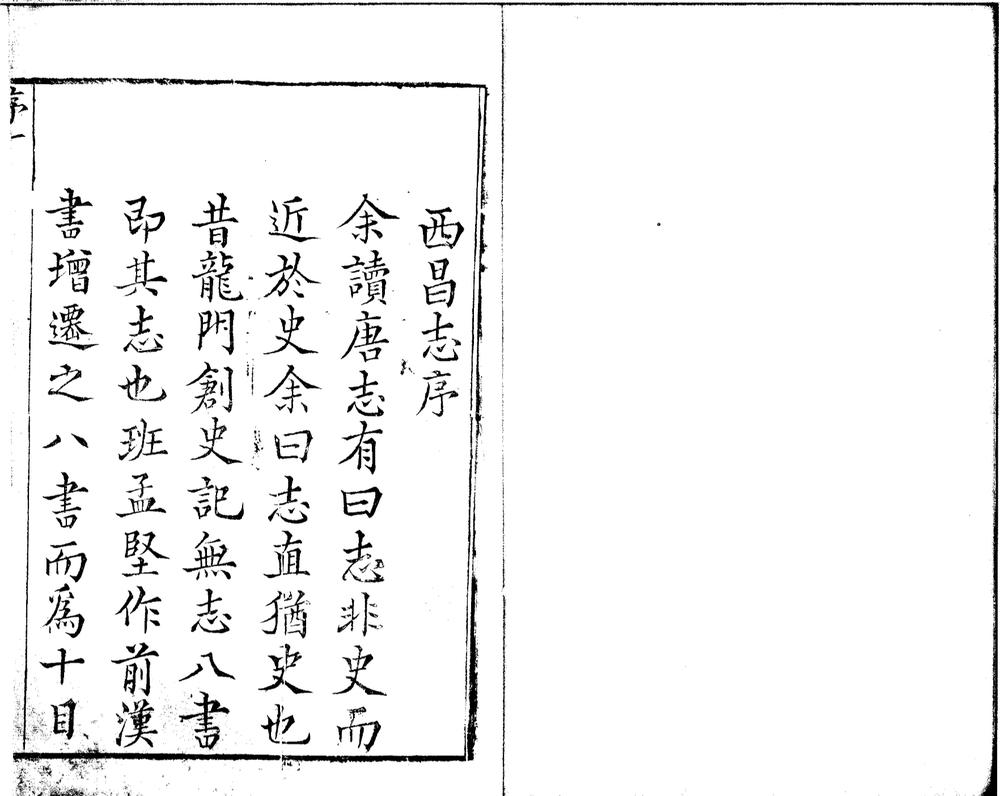 西昌志序
余讀唐志有曰志非史而
近於史余曰志直猶史也
昔龍門創史記無志八書
即其志也班孟堅作前漢
書增遷之八書而爲十目
序一